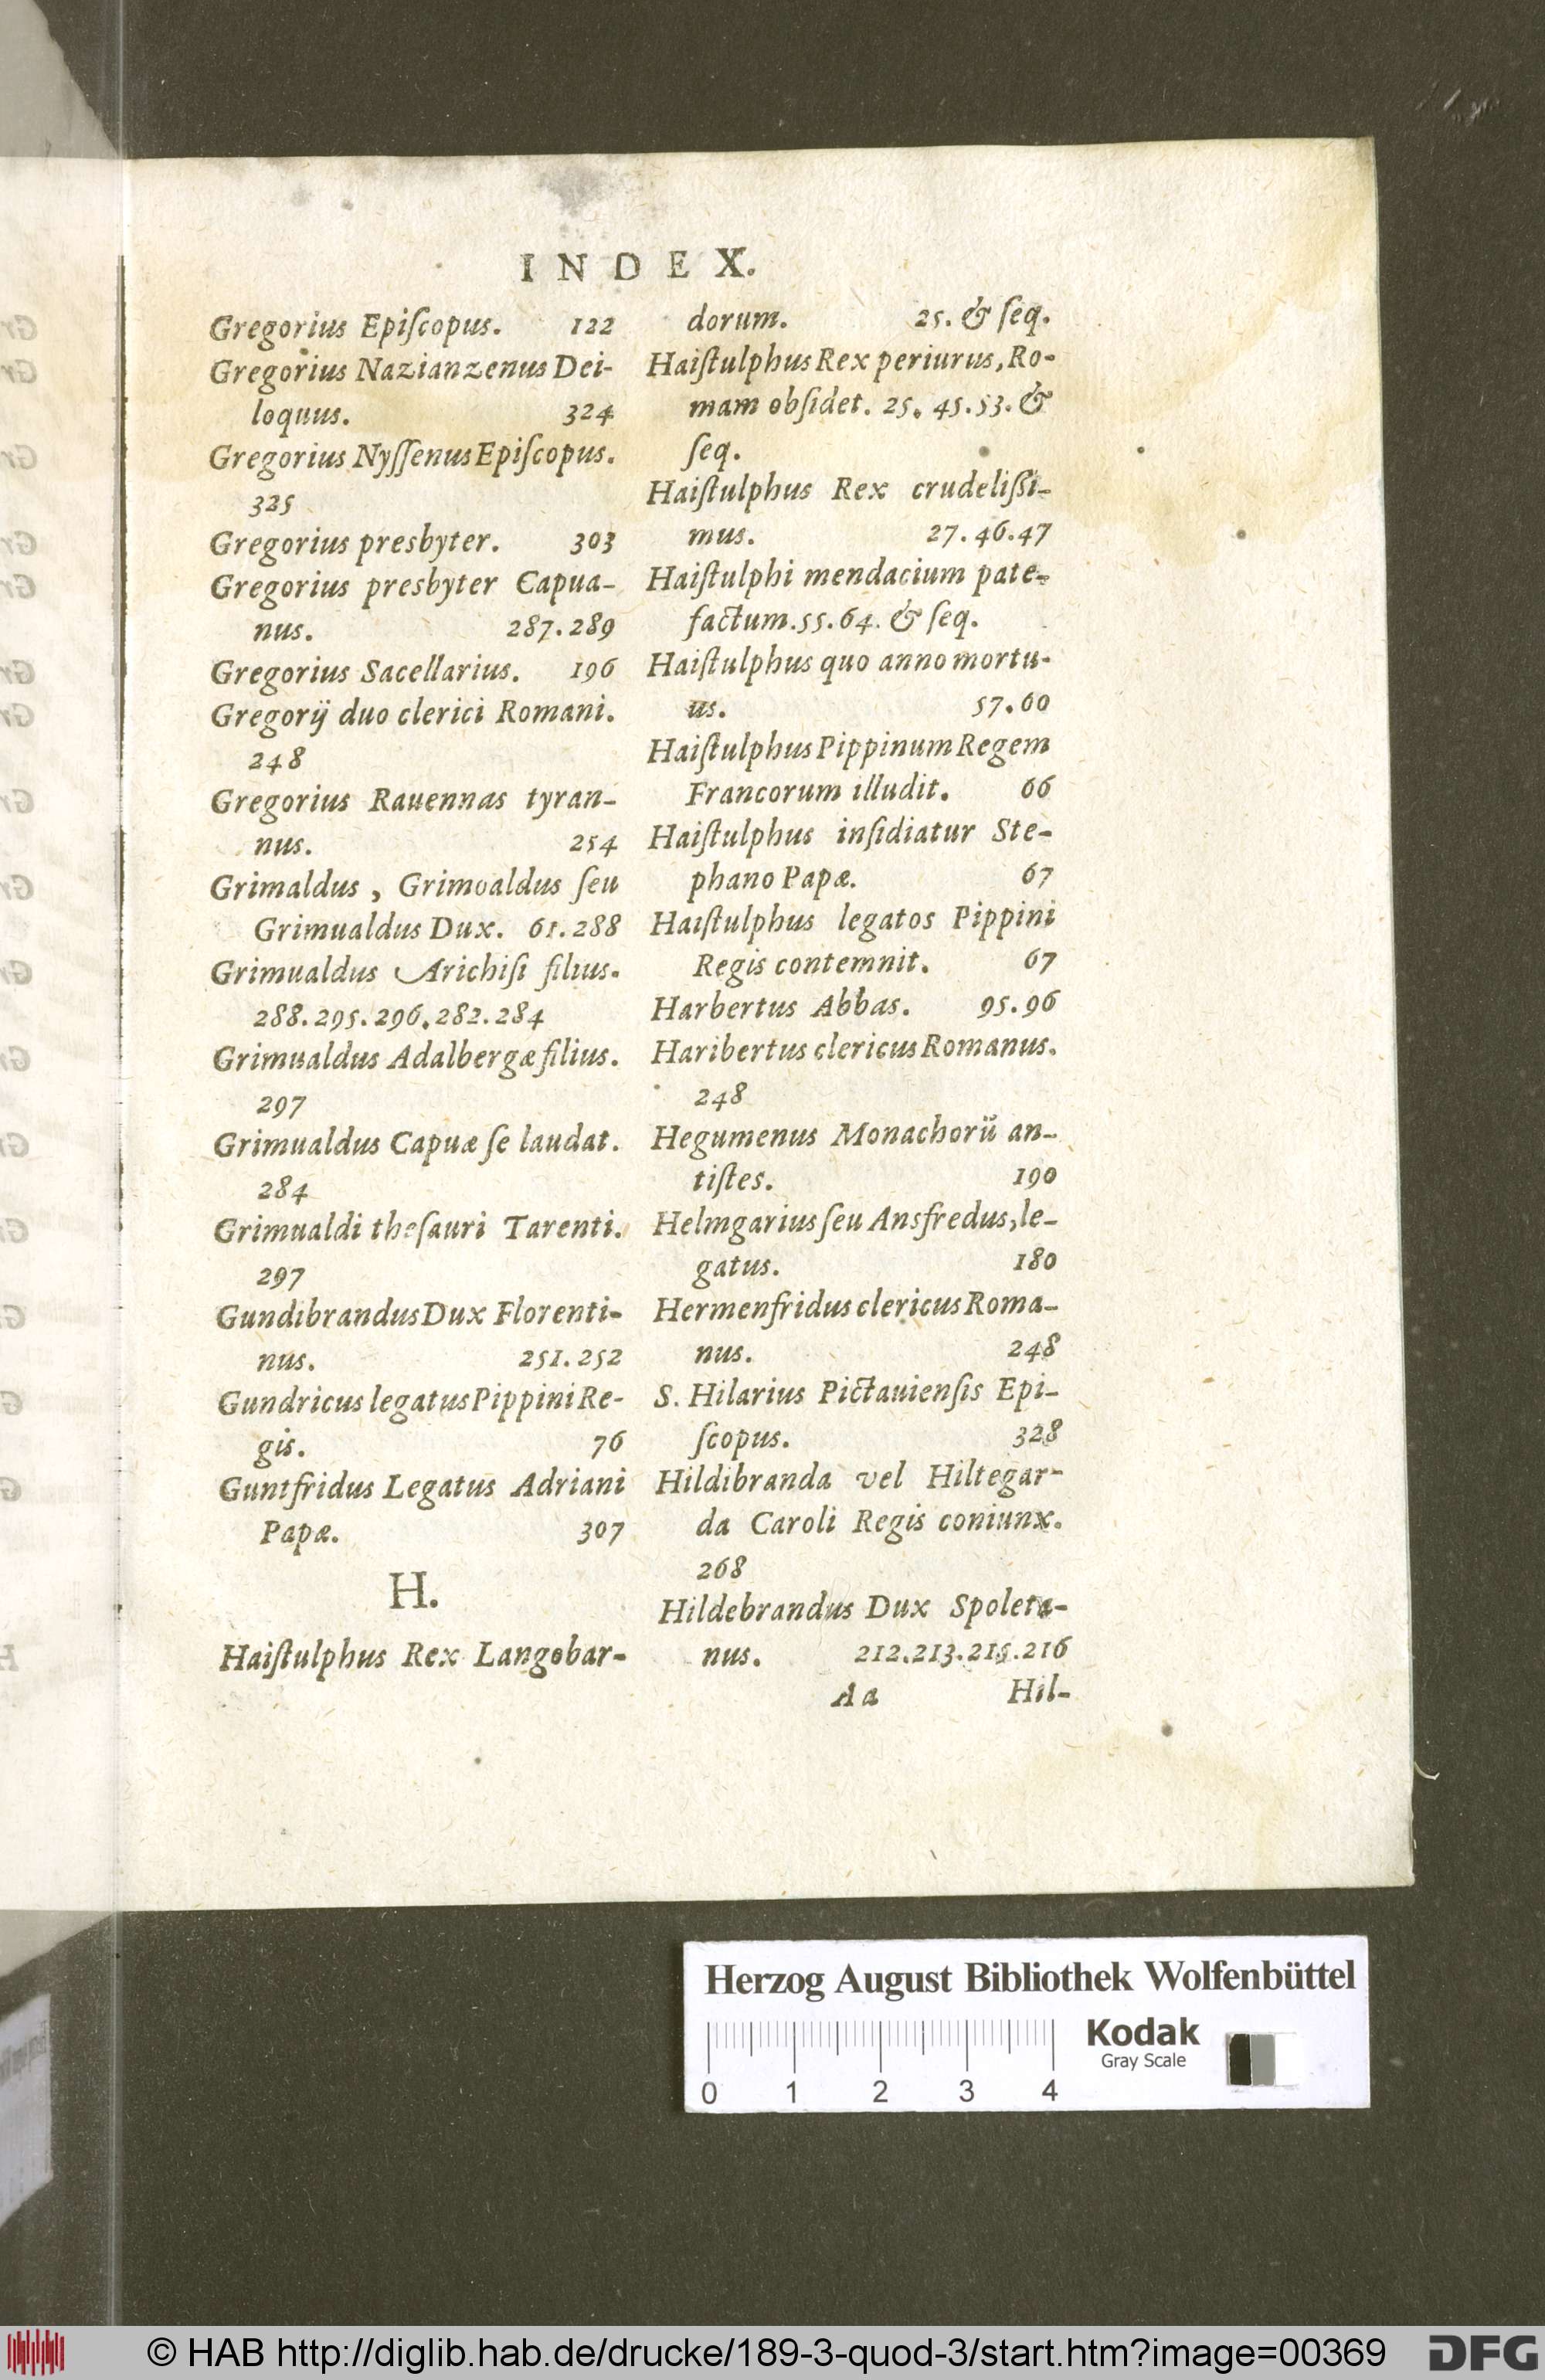 INDEX.
Gregorius Epiſcopus. 122
Gregorius Nazianzenus Dei-
loquus. 324
Gregorius Nyſſenus Epiſcopus.
325
Gregorius presbyter. 303
Gregorius presbyter Capua-
nus. 287.289
Gregorius Sacellarius. 196
Gregorij duo clerici Romani.
248
Gregorius Rauennas tyran-
nus. 254
Grimaldus, Grimoaldus ſeu
Grimualdus Dux. 61.288
Grimualdus Arichiſi filius.
288.295.296.282.284
Grimualdus Adalbergæ filius.
297
Grimualdus Capuæ ſe laudat.
284
Grimualdi theſauri Tarenti.
297
Gundibrandus Dux Florenti-
nus. 251.252
Gundricus legatus Pippini Re-
gis. 76
Guntfridus Legatus Adriani
Papæ. 307
H.
Haiſtulphus Rex Langobar-
dorum. 25. & ſeq.
Haiſtulphus Rex periurus, Ro-
mam obſidet. 25. 45.53. &
ſeq.
Haiſtulphus Rex crudelißi-
mus. 27.46.47
Haiſtulphi mendacium pate-
factum. 55.64. & ſeq.
Haiſtulphus quo anno mortu-
us. 57.60
Haiſtulphus Pippinum Regem
Francorum illudit. 66
Haiſtulphus inſidiatur Ste-
phano Papæ. 67
Haiſtulphus legatos Pippini
Regis contemnit. 67
Harbertus Abbas. 95.96
Haribertus clericus Romanus.
248
Hegumenus Monachorũ an-
tiſtes. 190
Helmgarius ſeu Ansfredus, le-
gatus. 180
Hermenfridus clericus Roma-
nus. 248
S. Hilarius Pictauienſis Epi-
ſcopus. 328
Hildibranda vel Hiltegar-
da Caroli Regis coniunx.
268
Hildebrandus Dux Spoleta-
nus. 212.213.215.216
Aa Hil-
Herzog August Bibliothek Wolfenbüttel
Kodak
Gray Scale
0 1 2 3 4
© HAB http://diglib.hab.de/drucke/189-3-quod-3/start.htm?image=00369
DFG